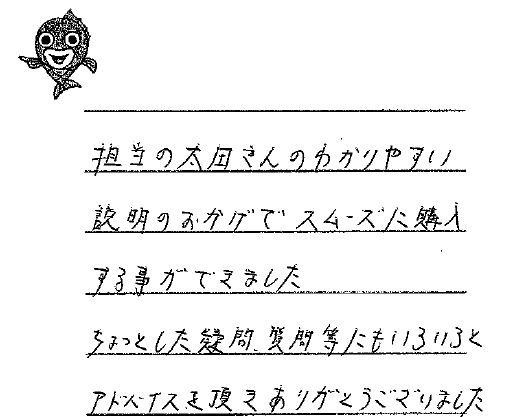 担当の太田さんのわかりやすい
説明のおかげでスムーズに購入
する事ができました
ちょっとした疑問、質問等にもいろいろと
アドバイスを頂きありがとうございました